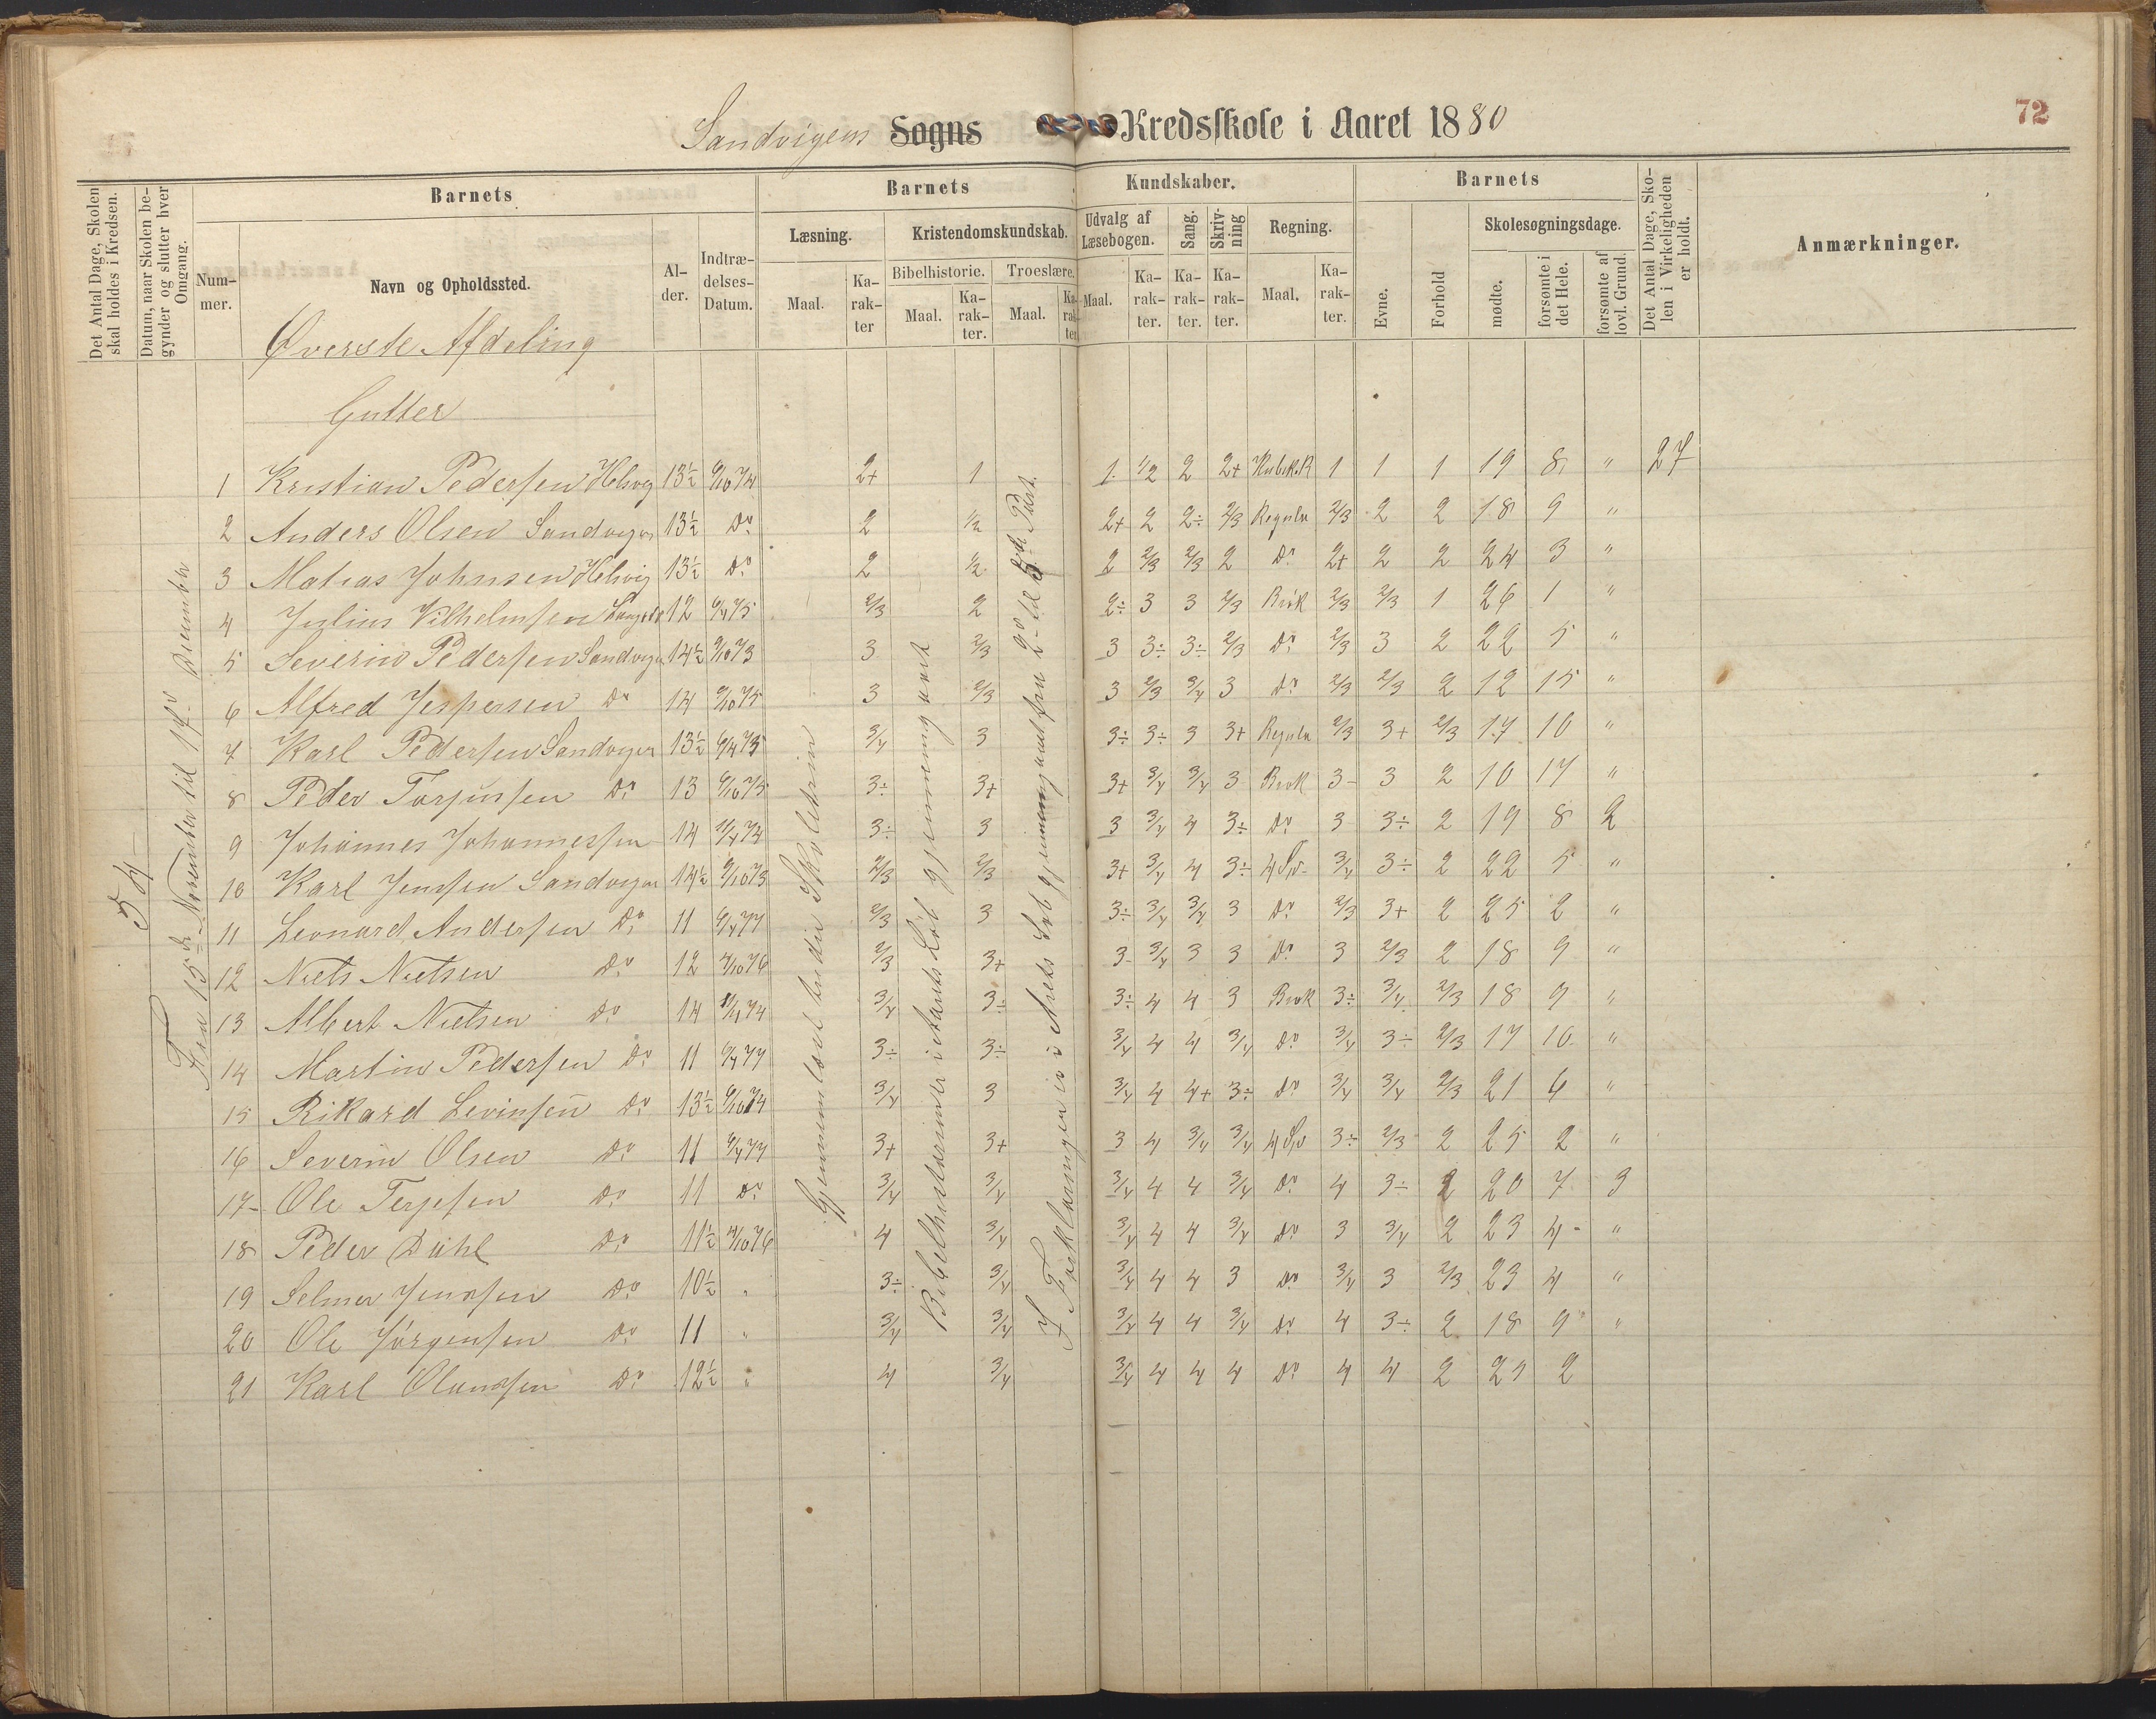 72
Sandvigens Sogns Kredsskole i Aaret 1880
Det Antal Dage, Skolen skal holdes i Kredsen.
Datum, naar Skolen begynder og slutter hver Omgang.
Barnets
Barnets
Kundskaber.
Barnets
Det Antal Dage, Skolen i Virkeligheden er holdt.
Anmærkninger.
Nummer.
Navn og Opholdssted.
Alder.
Indtrædelses-Datum.
Læsning.
Kristendomskundskab.
Udvalg af Læsebogen.
Sang.
Skrivning
Regning.
Evne.
Forhold
Skolesøgningsdage.
Maal.
Karakter
Bibelhistorie.
Troeslære.
Maal.
Karakter.
Maal.
Karakter
Maal.
Karakter.
Karakter.
Karakter.
Maal.
Karakter.
mødte.
forsømte i det Hele.
forsømte af lovl. Grund.
Øverste Afdeling
Gutter
54
Fra 15de November til 17de December
Bibelhistorien er i Aarets Løb gjennemgaaet
I Forklaringen er i Aarets Løb gjennemgaaet fra 2den til 3die Part.
1 Kristian Pedersen Helvig 13½ 9/10 74 2+ 1 1 1/2 2 2+ Kubik.R 1 1 1 19 8 " 27
2 Anders Olsen Sandvigen 13½ Do 2 1/2 2+ 2 2÷ 2/3 Regula 2/3 2 2 18 9 "
3 Matias Johnsen Helvig 13½ Do 2 1/2 2 2/3 2/3 2 Do 2+ 2 2 24 3 "
4 Julius Vilhelmsen 12 6/4 75 2/3 2 2÷ 3 3 2/3 Brøk 2/3 2/3 1 26 1 "
5 Severin Pedersen Sandvigen 14½ 9/10 73 3 2/3 3 3÷ 3÷ 2/3 Do 2/3 3 2 22 5 "
6 Alfred Jespersen Do 14 9/10 75 3 2/3 3 2/3 3/4 3 Do 2/3 2/3 2 12 15 "
7 Karl Pedersen Sandvigen 13½ 6/4 75 3/4 3 3÷ 3÷ 3 3+ Regula 2/3 3+ 2/3 17 10 "
8 Peder Torjusen Do 13 9/10 75 3÷ 3+ 3+ 3/4 3/4 3 Brøk 3- 3 2 10 17 "
9 Johannes Johannessen 14 11/4 74 3÷ 3 3 3/4 4 3÷ Do 3 3÷ 2 19 8 2
10 Karl Jenssen Sandvigen 14½ 9/10 73 2/3 2/3 3+ 3/4 4 3÷ 4 Sp 3/4 3÷ 2 22 5 "
11 Leonard Andersen Do 11 9/4 77 2/3 3 3÷ 3/4 3/4 3 Do 2/3 3+ 2 25 2 "
12 Niels Nielsen Do 12 4/10 76 2/3 3+ 3- 3/4 3 3 Do 3 2/3 2 18 9 "
13 Albert Nielsen Do 14 11/4 74 3/4 3÷ 3÷ 4 4 3 Brøk 3÷ 3/4 2/3 18 9 "
14 Martin Pedersen Do 11 9/4 77 3÷ 3÷ 3/4 4 4 3/4 Do 3/4 3÷ 2/3 17 10 "
15 Rikard Levinsen Do 13½ 9/10 74 3/4 3 3/4 4 4+ 3÷ Do 3/4 3/4 2/3 21 6 "
16 Severin Olsen Do 11 9/4 77 3+ 3+ 3 4 3/4 3/4 4 Sp 3÷ 2/3 2 25 2 "
17 Ole Terjesen Do 11 Do 3/4 3/4 3/4 4 4 3/4 Do 4 3÷ 2 20 7 3
18 Peder Dahl Do 11½ 4/10 76 4 3/4 3/4 4 4 3/4 Do 3 3/4 2 23 4 "
19 Selmer Jenssen Do 10½ 3÷ 3/4 3/4 4 4 3 Do 3/4 3 2/3 23 4 "
20 Ole Jörgensen Do 11 " 3/4 3/4 3/4 4 4 3/4 Do 4 3÷ 2 18 9 "
21 Karl Olaussen Do 12½ " 4 3/4 3/4 4 4 4 Do 4 4 2 25 2